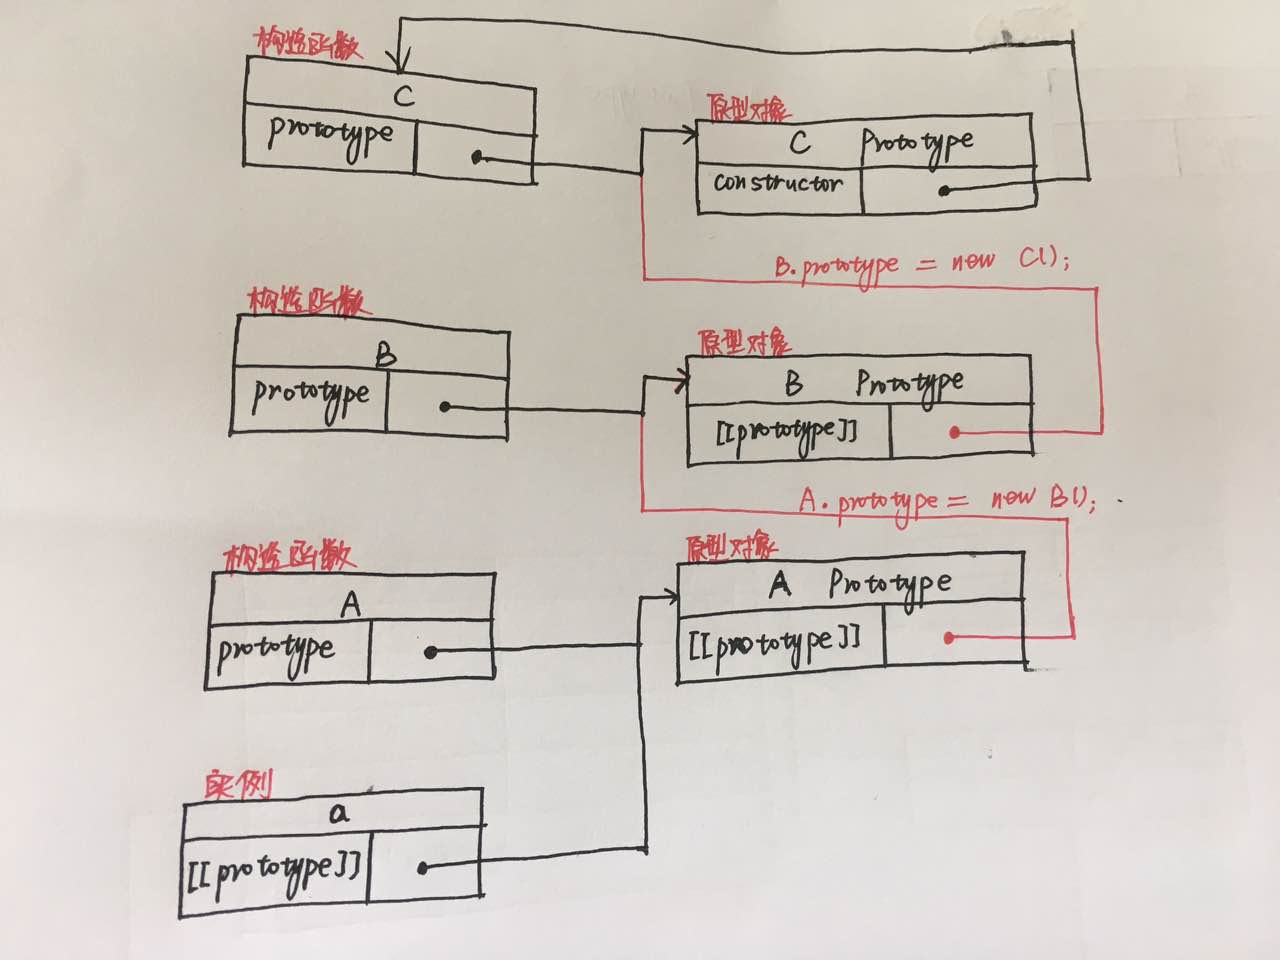 构造函数
C
prototype
原型对象
C Prototype
constructor
B.prototype = new C();
构造函数
B
prototype
原型对象
B Prototype
[[prototype]]
A.prototype = new B();
构造函数
A
prototype
原型对象
A Prototype
[[prototype]]
实例
a
[[prototype]]